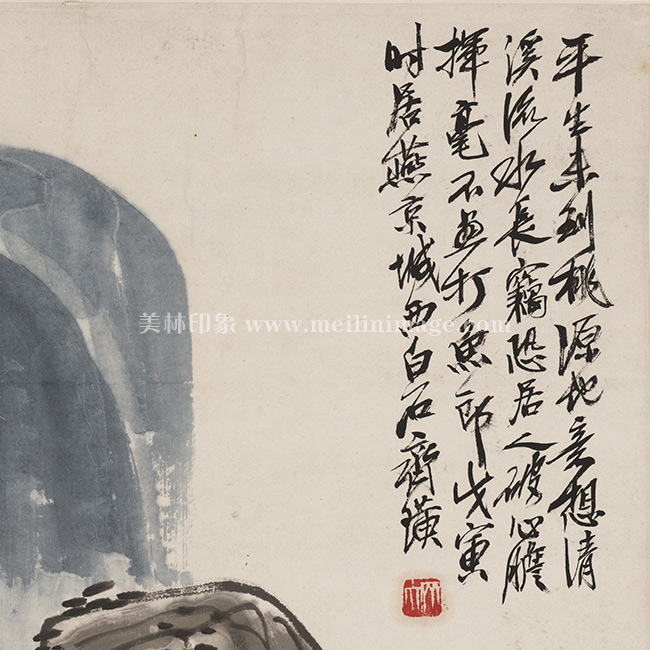 平生未到桃源地意想清
溪流水長竊恐居人破心膽
揮毫不畫打魚郎戊寅
时居燕京城西白石齊璜
美林印象 www.meilinimage.com